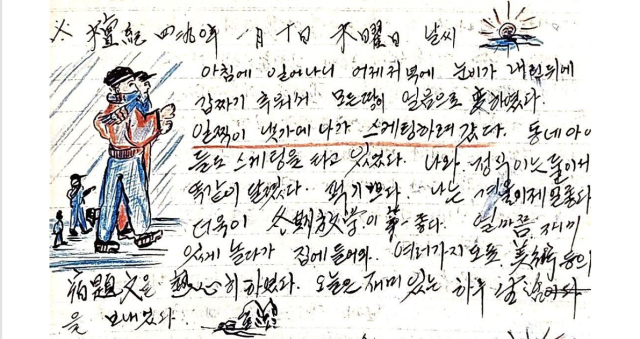 ※ 檀紀 四二九0年 一月 十日 木曜日 날씨
아침에 일어나니 어제저녁에 눈비가 내린뒤에
갑짜기 추워서 모든땅이 얼음으로 変하였다.
일찍이 냇가에 나가 스케팅하려 갔다. 동네아이
들도 스케팅을 타고 있었다. 나와 정식이는 둘이서
똑같이 달렸다. 퍽 기쁘다. 나는 겨울이제일좋다
더욱이 冬期放学이 第一좋다. 얼마쯤 재미
있게 놀다가 집에들어와 여러가지 美術 等의
宿題文을 熱心히 하였다. 오늘은 재미있는 하루 生活
을 보내었다.